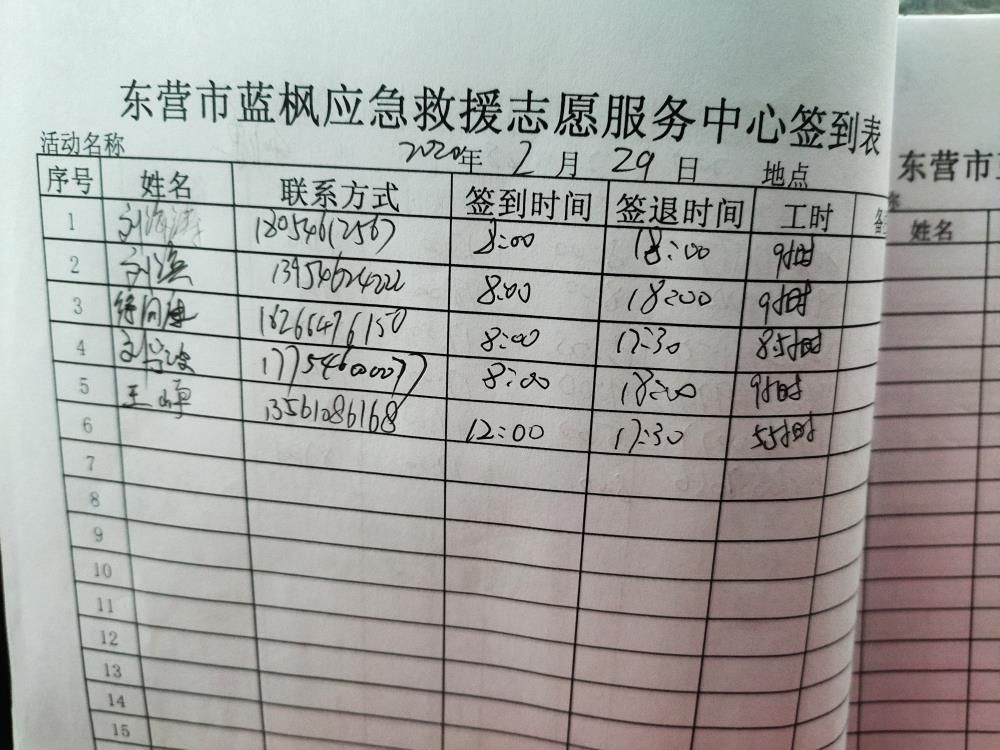 东营市蓝枫应急救援志愿服务中心签到表
活动名称 2020年 2 月 29 日 地点
序号 姓名 联系方式 签到时间 签退时间 工时 备
1 刘海涛 18054612567 8:00 18:00 9小时
2 刘滨 13954624222 8:00 18:00 9小时
3 18266476150 8:00 17:30 8.5小时
4 17754600077 8:00 18:00 9小时
5 王 13561086168 12:00 17:30 5.5小时
6
7
8
9
10
11
12
13
14
15
东营市
姓名